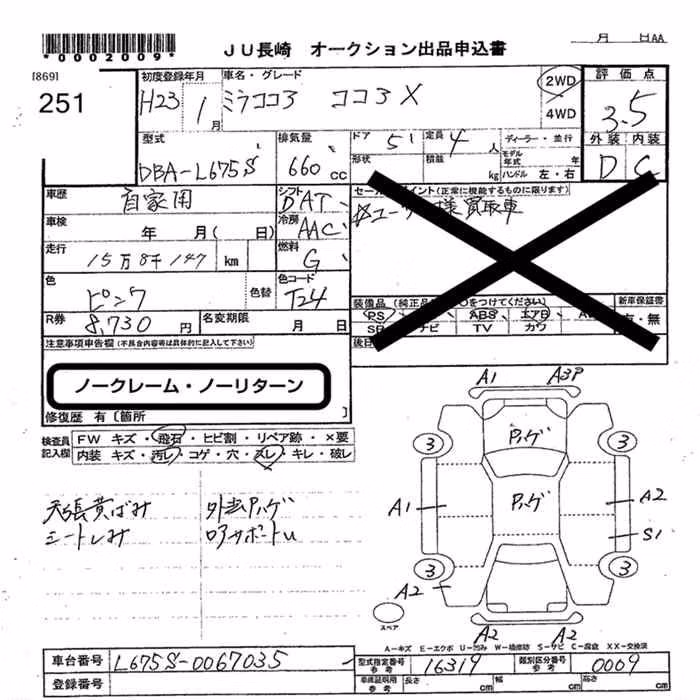 *0002009*
JU長崎 オークション出品申込書
月 日AA
[869]
251
初度登録年月
H23 1月
車名・グレード
ミラココア ココアX
2WD
4WD
評価点
3.5
外装 内装
D C
型式
DBA-L675S
排気量
660 cc
ドア 5
定員 4 人
形状
積載 kg
ディーラー・並行
モデル年式 年
ハンドル 左・右
車歴
自家用
シフト
DAT
車検
年 月( 日)
冷房
AAC
走行
15万8千147 km
燃料
G
色
ピンク
色替
色コード
T24
R券
8,730 円
名変期限
月 日
セールスポイント(正常に機能するものに限ります)
☆ユーザー様買取車
装備品(純正品 ○をつけてください)
新車保証書
PS ABS エアB
SR ナビ TV カワ
・無
後日
注意事項申告欄(不具合内容等は具体的に記入して下さい)
ノークレーム・ノーリターン
修復歴 有〔箇所 〕
検査員記入欄
FW キズ・飛石・ヒビ割・リペア跡・×要
内装 キズ・汚レ・コゲ・穴・スレ・キレ・破レ
天張黄ばみ
シートしみ
外板ハゲ
A1
A3P
ハゲ
3
3
A1
ハゲ
A2
S1
3
3
A2
スペア
A2
A2
A-キズ E-エクボ U-凹み W-補修跡 S-サビ C-腐食 XX-交換済
車台番号
L675S-0067035
登録番号
型式指定番号 参考
16319
類別区分番号 参考
0009
車庫証明用 参考
長さ cm
幅 cm
高さ cm